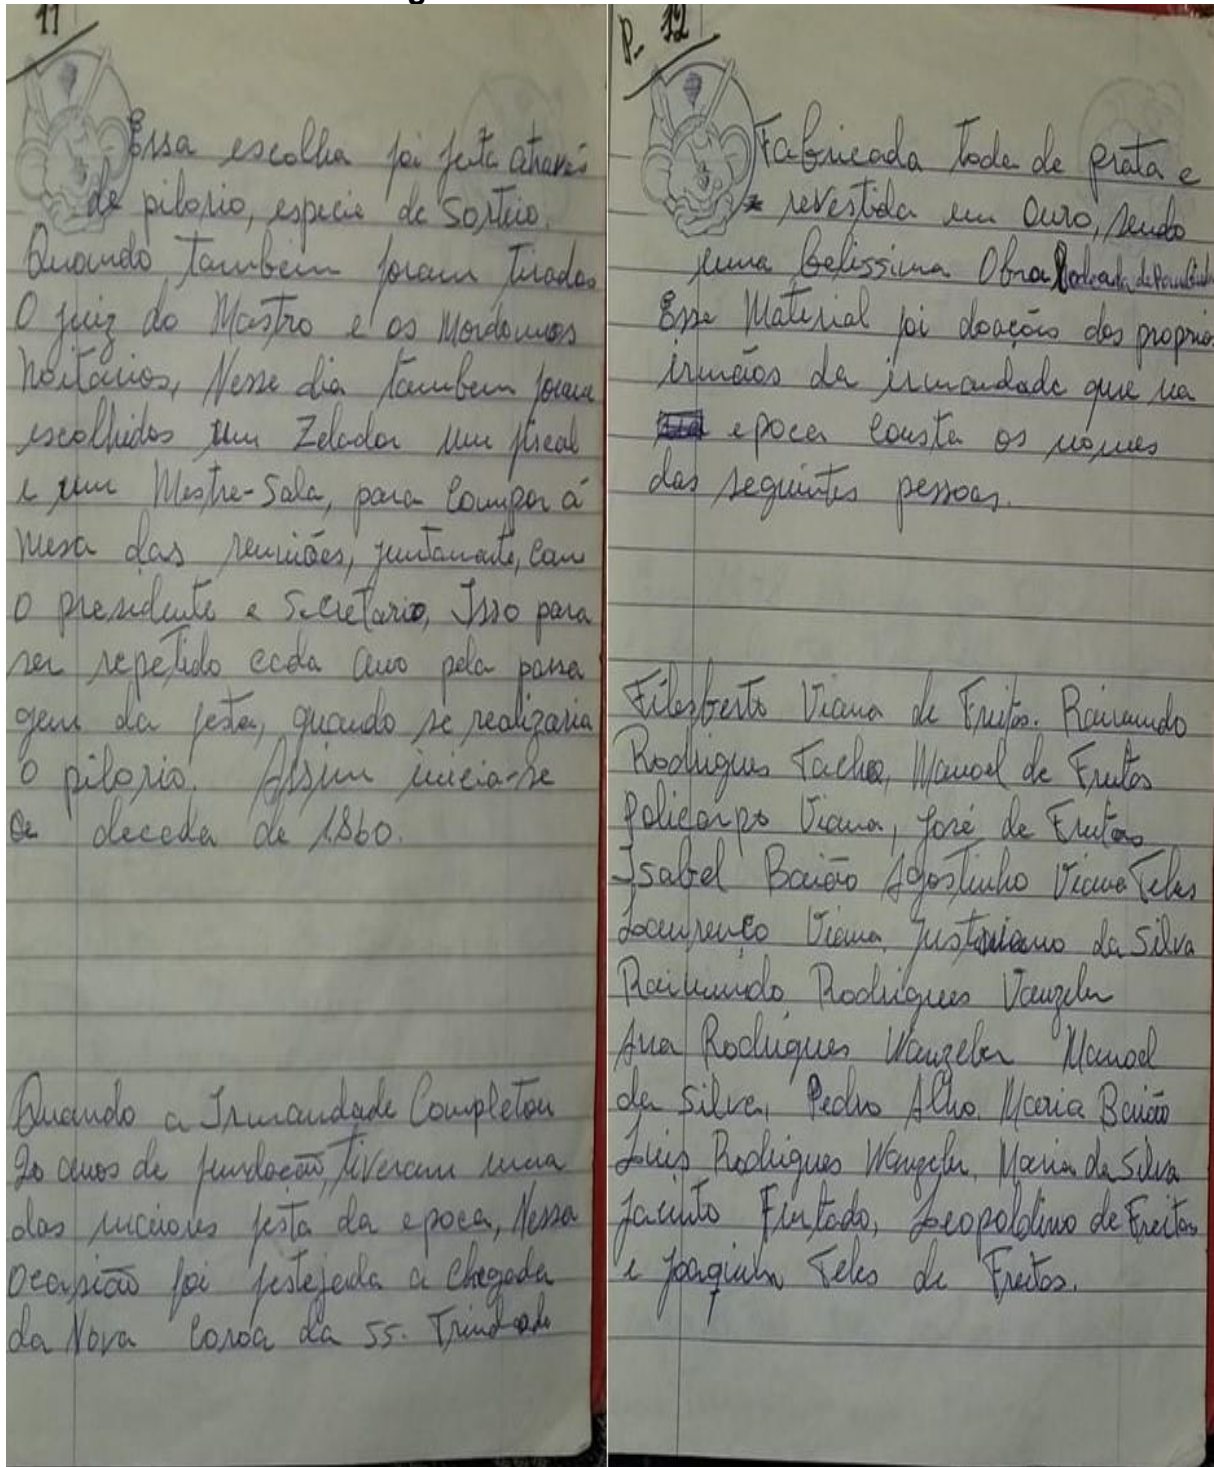 11
Essa escolha foi feita através
de pilorio, especie de Sorteio.
Quando, também foram tirados
O juiz do Mastro e os Mordomos
Noitários, Nesse dia tambem foram
escolhidos um Zelador um fiscal
e um Mestre-Sala, para Compor á
mesa das reuniões, juntamente, com
O presidente e Secretario, Isso para
ser repetido cada ano pela passa
gem da festa, quando se realizaria
O pilorio. Assim inicia-se
a decada de 1860.
Quando a Irmandade Completou
20 anos de fundação, tiveram uma
das maiores festa da epoca, Nessa
Ocasião foi festejada a Chegada
da Nova Coroa da SS. Trindade
P. 12
Fabricada toda de prata e
revestida em Ouro, sendo
uma belissima Obra
Esse Material foi doação dos proprios
irmãos da irmandade que na
epoca Consta os nomes
das seguintes pessoas.
Filesberto Viana de Freitas. Raimundo
Rodrigues Facho, Manoel de Freitas
Policarpo Viana, José de Freitas
Isabel Baião Agostinho Viana Teles
Lourenço Viana, Justiniano da Silva
Raimundo, Rodrigues Vanzeler
Ana Rodrigues Wanzeler Manoel
da Silva, Pedro Alho, Maria Baião
Luis Rodrigues Wanzeler, Maria da Silva
Jacinto Furtado, Leopoldino de Freitas
e Joaquim Teles de Freitas.